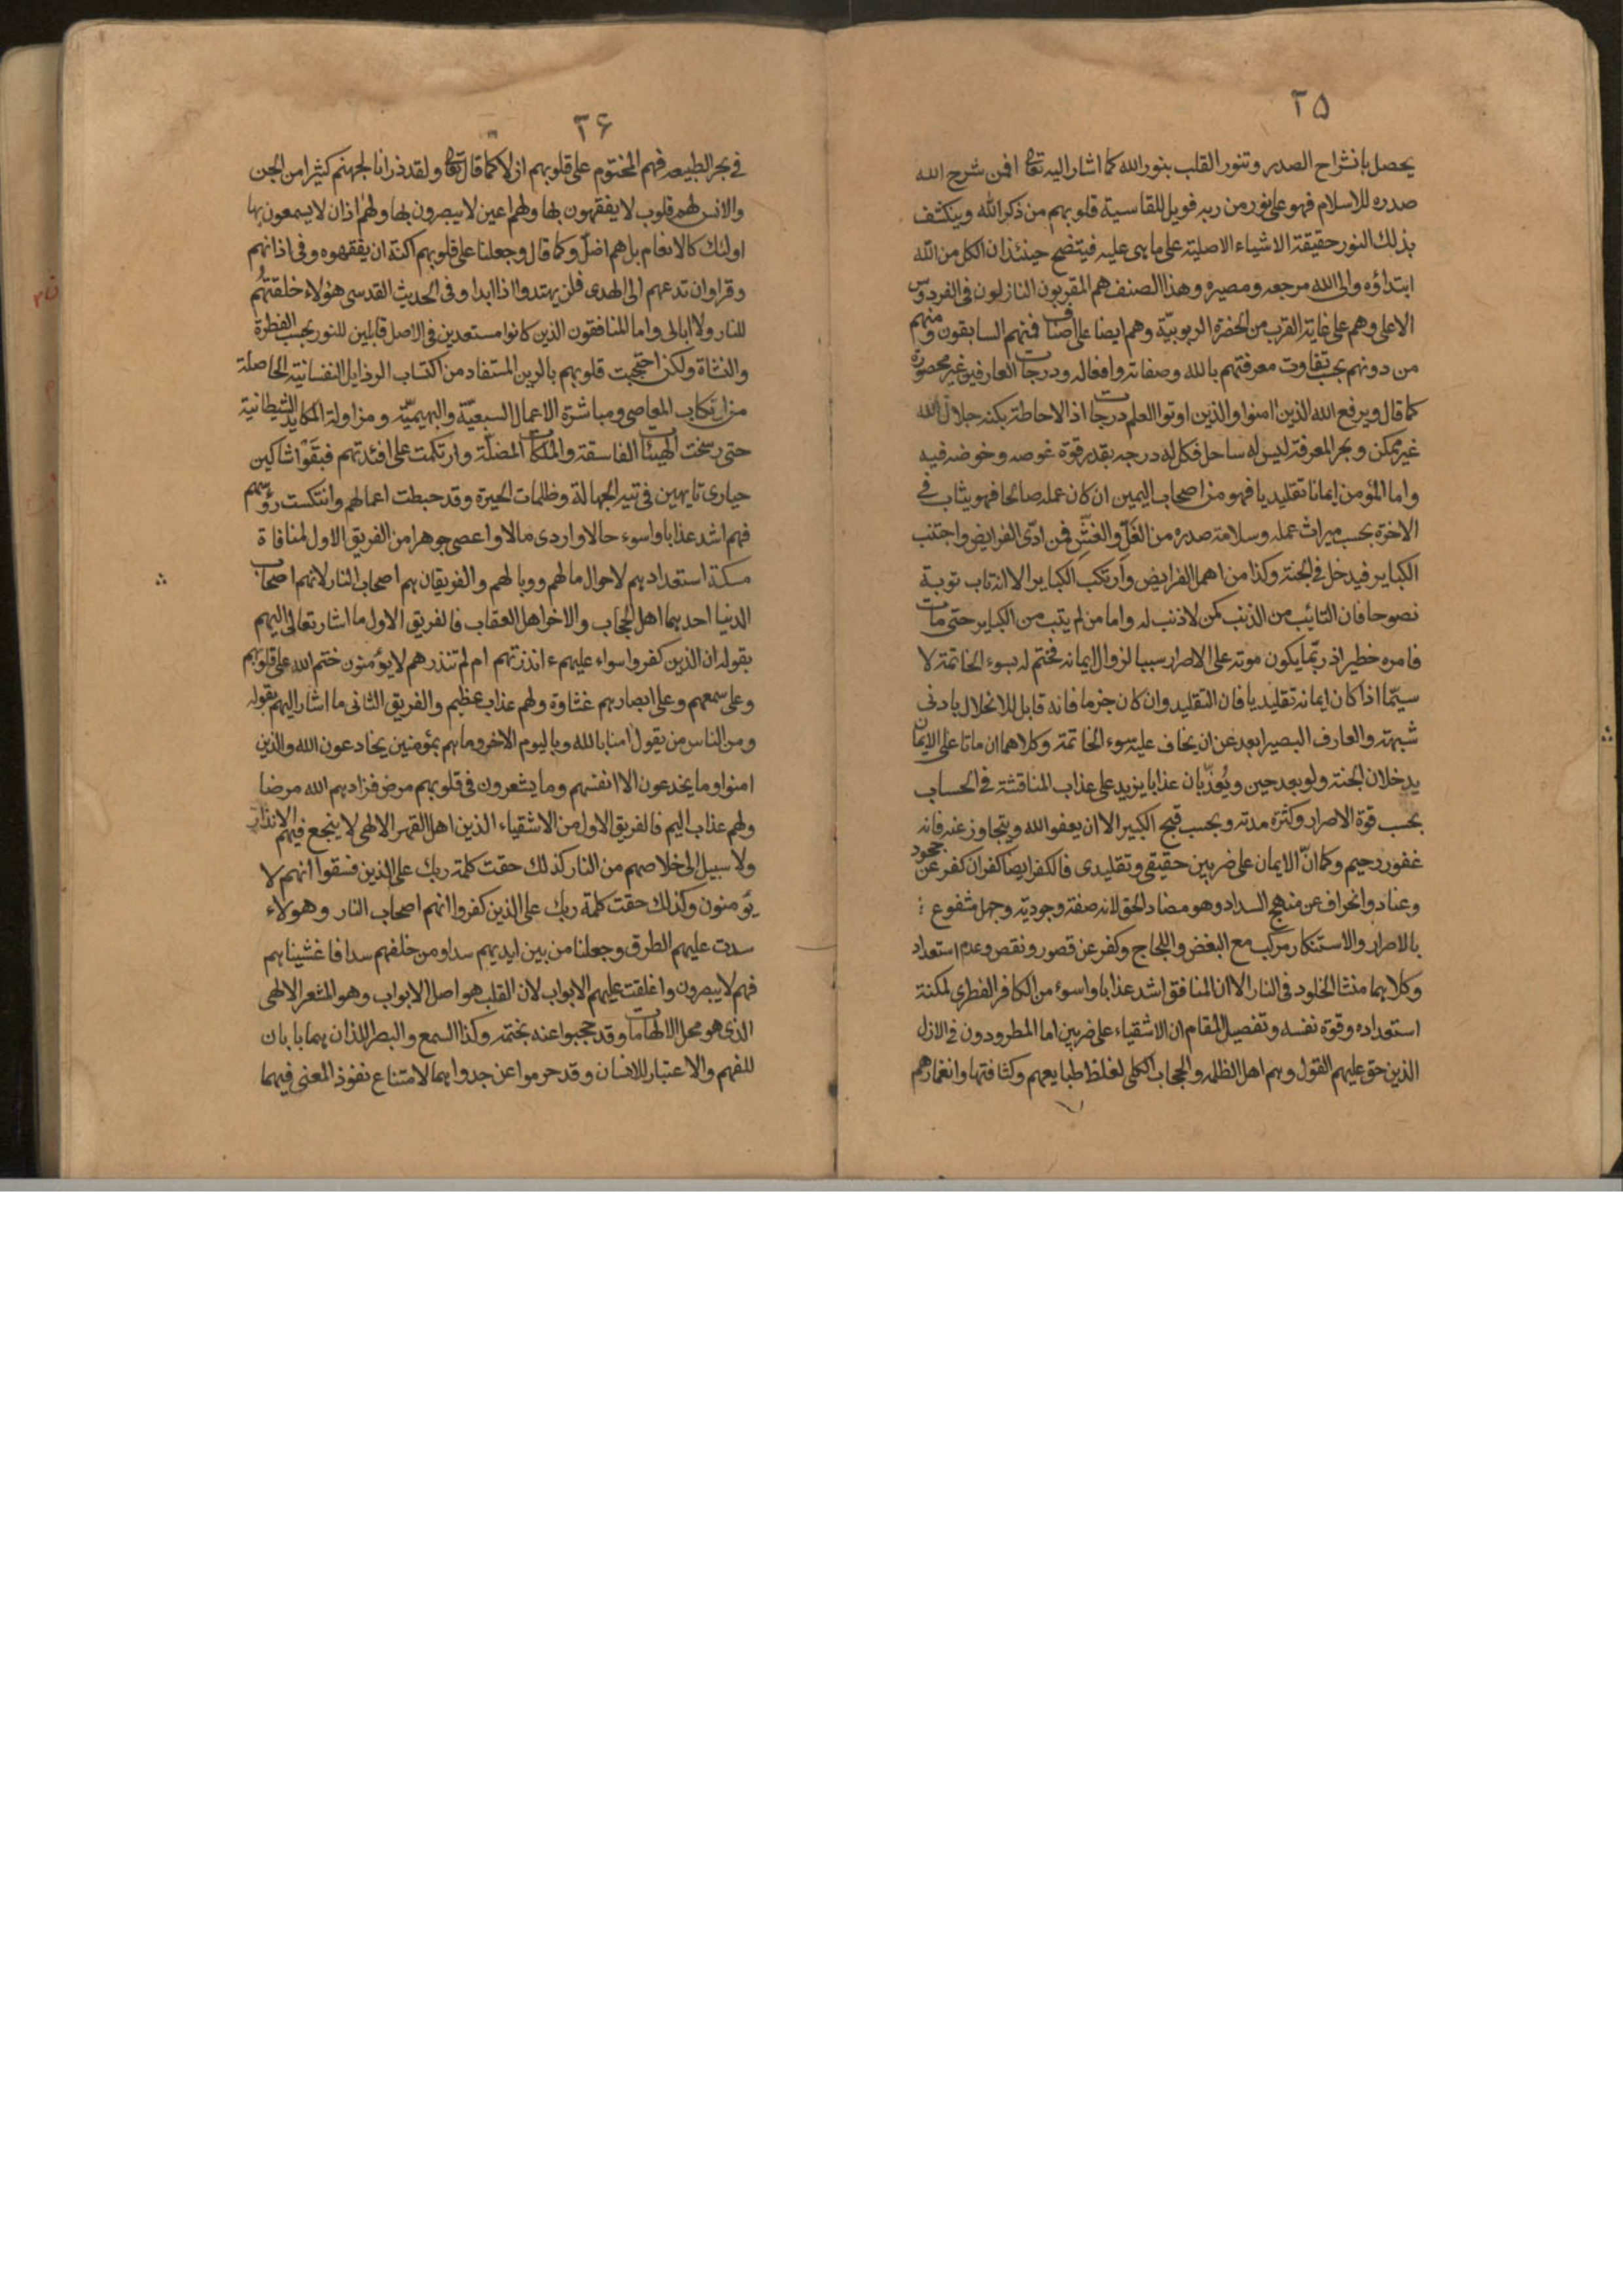 ٢۵
يحصل بانشراح الصدر وتنور القلب بنور الله كما اشار اليه تعالى افمن شرح الله
صدره للاسلام فهو على نور من ربه فويل للقاسية قلوبهم من ذكر الله وينكشف
بذلك النور حقيقة الاشياء الاصلية على ما هى عليه فيتضح حينئذ ان الكل من الله
ابتداؤه والى الله مرجعه ومصيره وهذا الصنف هم المقربون النازلون فى الفردوس
الاعلى وهم على غاية القرب من الحضرة الربوبيّة وهم ايضا على اصناف فمنهم السابقون ومنهم
من دونهم بحسب تفاوت معرفتهم بالله وصفاته وافعاله ودرجات العارفين غير محصورة
كما قال ويرفع الله الذين امنوا والذين اوتوا العلم درجات اذ الاحاطة بكنه جلال الله
غير ممكن وبحر المعرفة ليس له ساحل فكل له درجه بقدر قوة غوصه وخوضه فيه
واما المؤمن ايمانا تقليديا فهو من اصحاب اليمين ان كان عمله صالحا فهو يثاب فى
الاخرة بحسب ميراث عمله وسلامة صدره من الغلّ والغشّ فمن ادّى الفرايض واجتنب
الكباير فيدخل فى الجنة وكذا من اهمل الفرايض وارتكب الكباير الا انه تاب توبة
نصوحا فان التائب من الذنب كمن لا ذنب له واما من لم يتب من الكباير حتى مات
فامره خطير اذ ربّما يكون موته على الاصرار سببا لزوال ايمانه فختم له بسوء الخاتمة لا
سيّما اذا كان ايمانه تقليديا فان التقليد وان كان جزما فانه قابل للانحلال بادنى
شبهة والعارف البصير ابعد عن ان يخاف عليه سوء الخاتمة وكلاهما ان ماتا على الايمان
يدخلان الجنة ولو بعد حين ويُعذّبان عذابا يزيد على عذاب المناقشة فى الحساب
بحسب قوة الاصرار وكثرة مدته وبحسب قبح الكبير الا ان يعفو الله ويتجاوز عنه فانه
غفور رحيم وكما انّ الايمان على ضربين حقيقى وتقليدى فالكفر ايضا كفران كفر عن جحود
وعناد وانحراف عن منهج السداد وهو مضاد الحق لانه صفة وجوديّة وجهل مشفوع :
بالاصرار والاستنكار مركب مع البغض واللجاج وكفر عن قصور ونقص وعدم استعداد
وكلاهما منشا الخلود فى النار الا ان المنافق اشد عذابا واسوء من الكافر الفطرى لمكنة
استعداده وقوة نفسه وتفصيل المقام ان الاشقياء على ضربين اما المطرودون فى الازل
الذين حق عليهم القول وهم اهل الظلمه والحجاب الكلى لغلظ طبايعهم وكثافتها وانغمارهم
٢۶
فى بحر الطبيعه فهم المختوم على قلوبهم ازلا كما قال تعالى ولقد ذرانا لجهنم كثيرا من الجن
والانس لهم قلوب لا يفقهون بها ولهم اعين لا يبصرون بها ولهم اذان لا يسمعون بها
اولئك كالانعام بل هم اضلّ وكما قال وجعلنا على قلوبهم اكنة ان يفقهوه وفى اذانهم
وقرا وان تدعهم الى الهدى فلن يهتدوا اذا ابدا وفى الحديث القدسى هؤلاء خلقتهُم
للنار ولا ابالى واما المنافقون الذين كانوا مستعدين فى الاصل قابلين للنور بحسب الفطرة
والنشاة ولكن احتجبت قلوبهم بالرين المستفاد من اكتساب الرذايل النفسانية الحاصلة
من ارتكاب المعاصى ومباشرة الاعمال السبعيّة والبهيميّة ومزاولة المكايد الشيطانية
حتى رسخت الهيئات الفاسقة والملكات المضلّة وارتكمت على افئدتهم فبقَوْا شاكين
حيارى تايهين فى تيه الجهالة وظلمات الحيرة وقد حبطت اعمالهم وانتكست رؤسهم
فهم اشد عذابا واسوء حالا واردى مالا واعصى جوهرا من الفريق الاول لمنافاة
مسكة استعدادهم لاحوال مالهم ووبالهم والفريقان هم اصحاب النار لانهم اصحاب
الدنيا احدهما اهل الحجاب والاخر اهل العقاب فالفريق الاول ما اشار تعالى اليهم
بقوله ان الذين كفروا سواء عليهم ءانذرتهم ام لم تنذرهم لا يؤمنون ختم الله على قلوبهم
وعلى سمعهم وعلى ابصارهم غشاوة ولهم عذاب عظيم والفريق الثانى ما اشار اليهم بقوله
ومن الناس من يقول امنا بالله وباليوم الاخر وما هم بمؤمنين يخادعون الله والذين
امنوا وما يخدعون الا انفسهم وما يشعرون فى قلوبهم مرض فزادهم الله مرضا
ولهم عذاب اليم فالفريق الاول من الاشقياء الذين اهل القهر الالهى لا ينجع فيهم الانذار
ولا سبيل الى خلاصهم من النار كذلك حقت كلمة ربك على الذين فسقوا انهم لا
يؤمنون وكذلك حقت كلمة ربك على الذين كفروا انهم اصحاب النار وهولاء
سدت عليهم الطرق وجعلنا من بين ايديهم سدا ومن خلفهم سدا فاغشيناهم
فهم لا يبصرون واغلقت عليهم الابواب لان القلب هو اصل الابواب وهو المشعر الالهى
الذى هو محل الالهامات وقد حجبوا عنه بختمه وكذا السمع والبصر اللذان هما بابان
للفهم والاعتبار للانسان وقد حرموا عن جدواهما لامتناع نفوذ المعنى فيهما